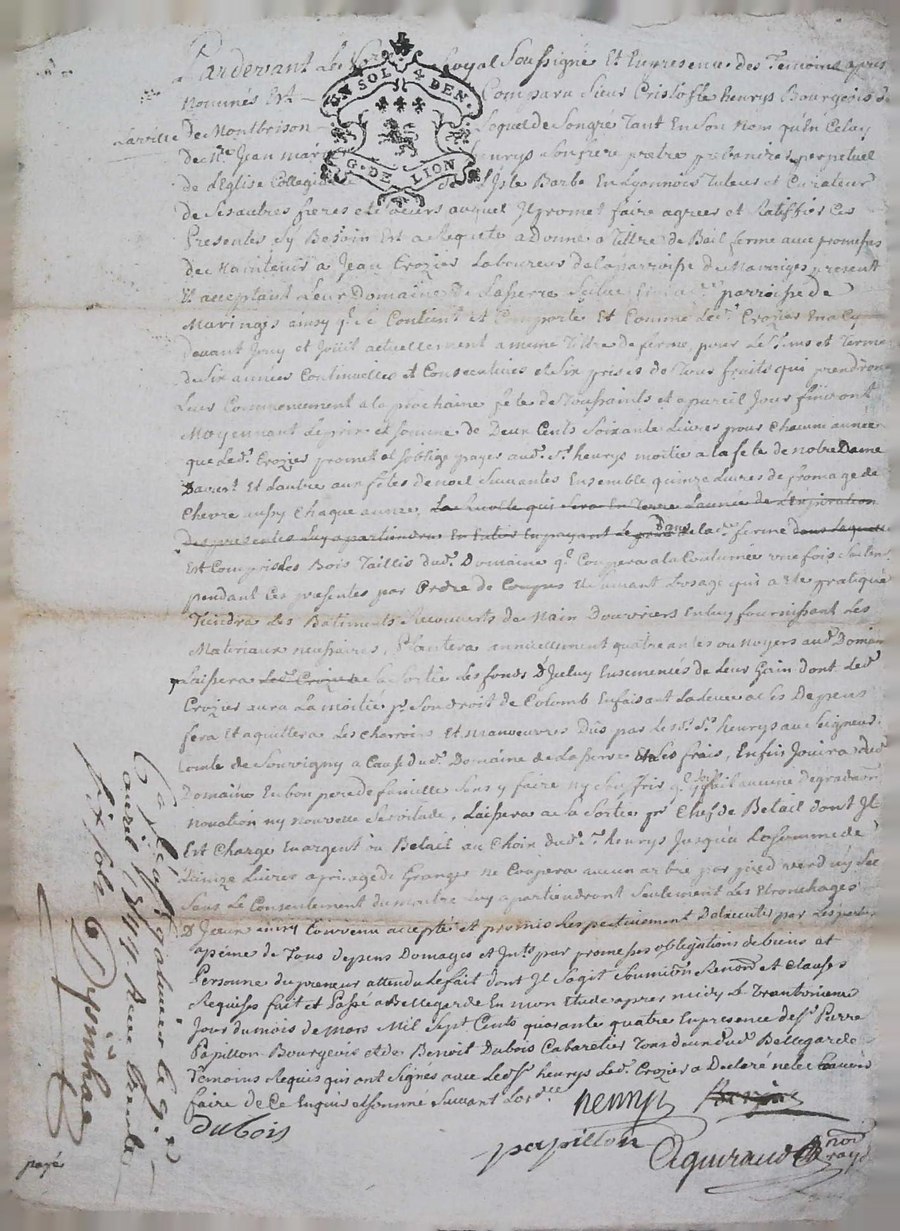 Pardevant Le Royal Soussigné Et En presence des Temoins apres
Nommés Est Comparu Sieur Cristofle henrys Bourgeois de
Laville de Montbrison Loquel de Songre Tant En Son Nom qu'En Celuy
UN SOL 4 DEN.
G. DE LION
de Mre Jean mar henrys Son frere pretre prebandier perpetuel
de L'Eglise Collegiale de L'Isle Barbe En Lyonnois Tuteur et Curateur
de Ses autres freres et soeurs auquel Il promet faire agreer et Ratiffier Ces
Presentes Sy Besoin Est a Requete a Donné a Tittre de Bail ferme avec promesses
de Maintenir a Jean Crozier Laboureur de la parroisse de Maringes present
Et acceptant Leur Domaine De Laserre parroisse de
Maringes ainsy Contient et Comporte Et Comme Led. Crozier En a Cy
devant Jouy et Jouit actuellement a meme Tittre de ferme, pour Le Tems et Terme
de Six années Continuelles et Consecutives et Six prises de Tous fruits qui prendront
Leur Commencement a la prochaine fete de Toussaints et a pareil Jour finiront
Moyennant Le prix et Somme de Deux Cents Soixante Livres pour Chacune année
que Led. Crozier promet et Soblige payer aud. Sr. henrys moitié a la fete de notre Dame
Et L'autre aux fetes de noel Suivantes Ensemble quinze Livres de fromage de
Chevre aussy Chaque année, La Recolte qui Sera En Terre L'année de L'Expiration
Des presentes Luy apartiendra En Entier En payant Dans de lad. ferme dans Laquelle
Est Compris Les Bois Taillis dud. Domaine qu'il Coupera a la Coutumée une fois Seulement
pendant Ces presentes par Ordre de Coupes Et Suivant L'usage qui a Eté pratiqué
Tiendra Les Batiments Recouverts de Main D'ouvriers En Luy fournissant Les
Materiaux necessaires, Plantera annuellement quatre antes ou Noyers aud. Domaine
Laissera Led. Crozier a la Sortie Les fonds D'Iceluy Ensemencés de Leur Gain dont Led.
Crozier aura La moitié pr. Son droit de Colomb En faisant
fera Et aquittera Les Charrois Et Manoeuvres Dus par Led. Sr. henrys au Seigneur
Comte de Souvigny a Cause dud. Domaine de Laserre frais, Enfin Jouira dud.
Domaine En bon pere de famille Sans y faire ny Souffrir qu'il Soit fait aucune degradation
novation ny nouvelle Servitude, Laissera a la Sortie pr. Chef de Betail dont Il
Est Chargé En argent ou Betail au Choix dud. Sr. henrys Jusqu'a La Somme de
Livres Granges ne Coupera aucun arbre par pied verd ny Sec
Sans Le Consentement du maitre Luy apartiendront Seulement Les Ebronchages
ainsy Convenu accepté et promis Respectivement D'executer par Les parties
a peine de Tous depens Domages et Intts. par promesses obligations de biens et
Personne du preneur attendu Le fait dont Il Sagit Soumission Renon et Clauses
Requises fait et Passé a Bellegarde En mon Etude apres midy Le Trantunieme
Jour du mois de Mars Mil Sept Cents quarante quatre En presence de Sr. Pierre
Papillon Bourgeois et de Benoit Dubois Cabaretier Tous deux dud. Bellegarde
Temoins Requis qui ont Signés avec Led. Sr. henrys Led. Crozier a Declaré ne le Scavoir
faire de Ce Enquis et Sommé Suivant L'ordce
henrys
dubois
papillon
Aguiraud
no.re royal
le 9. e
avril 1744 Receu
six sols
payé